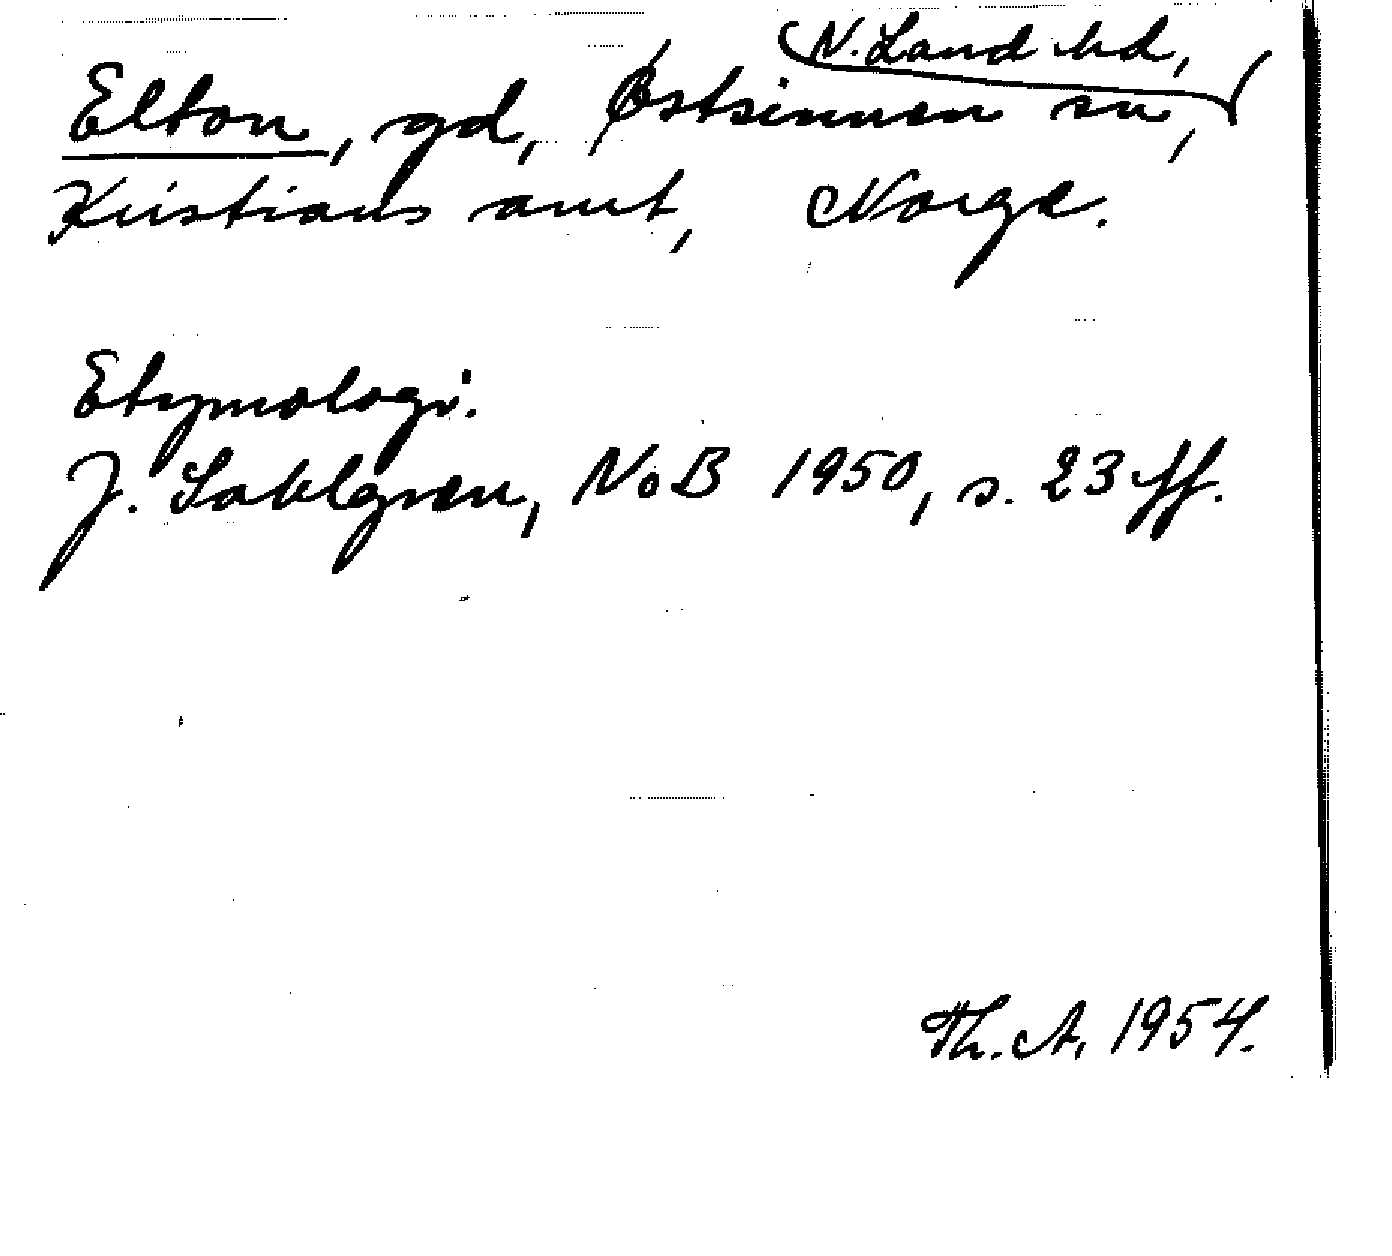 N. Land hd,
Elton, gd, Østsinnen sn,
Kristians amt, Norge.
Etymologi.
J. Sahlgren, NoB 1950, s. 23 ff.
Th. A. 1954.